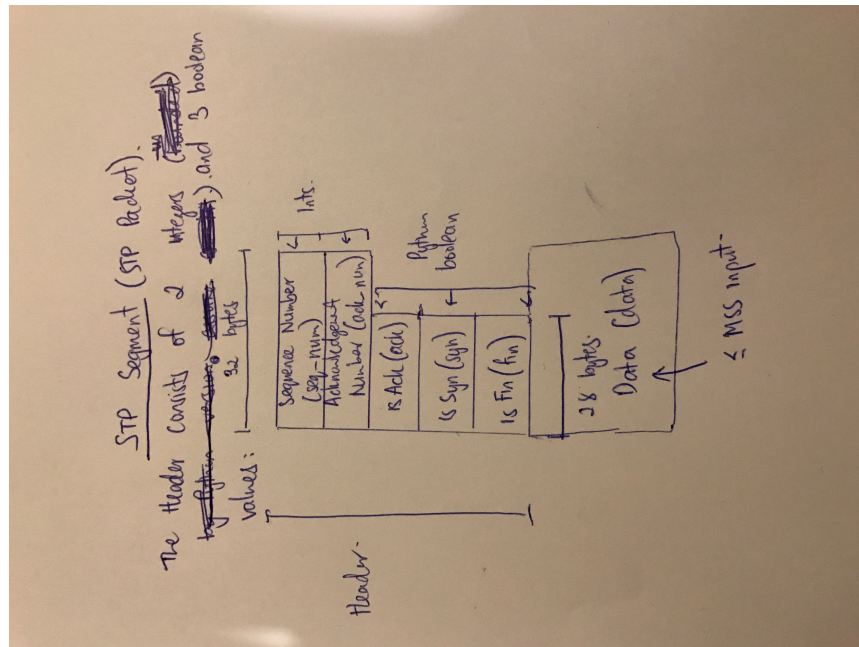 STP Segment (STP Packet).
The Header consists of 2 integers
by Python version. ) and 3 boolean
values:
32 bytes
Sequence Number
(seq-num)
Acknowledgent
Number (ack num)
Ints.
Is Ack (ack)
Is Syn (syn)
Is Fin (fin)
Python
boolean
Header.
28 bytes.
Data (data)
≤ MSS input.